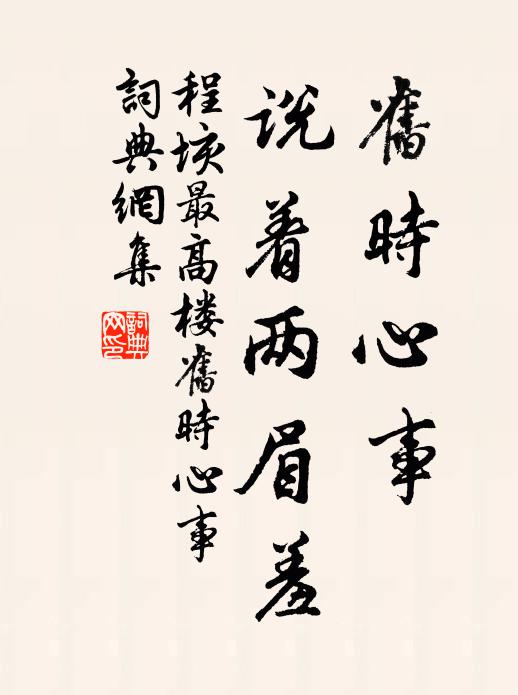 舊時心事
说着两眉羞
程垓最高楼舊時心事
詞典網集
詞典
网印